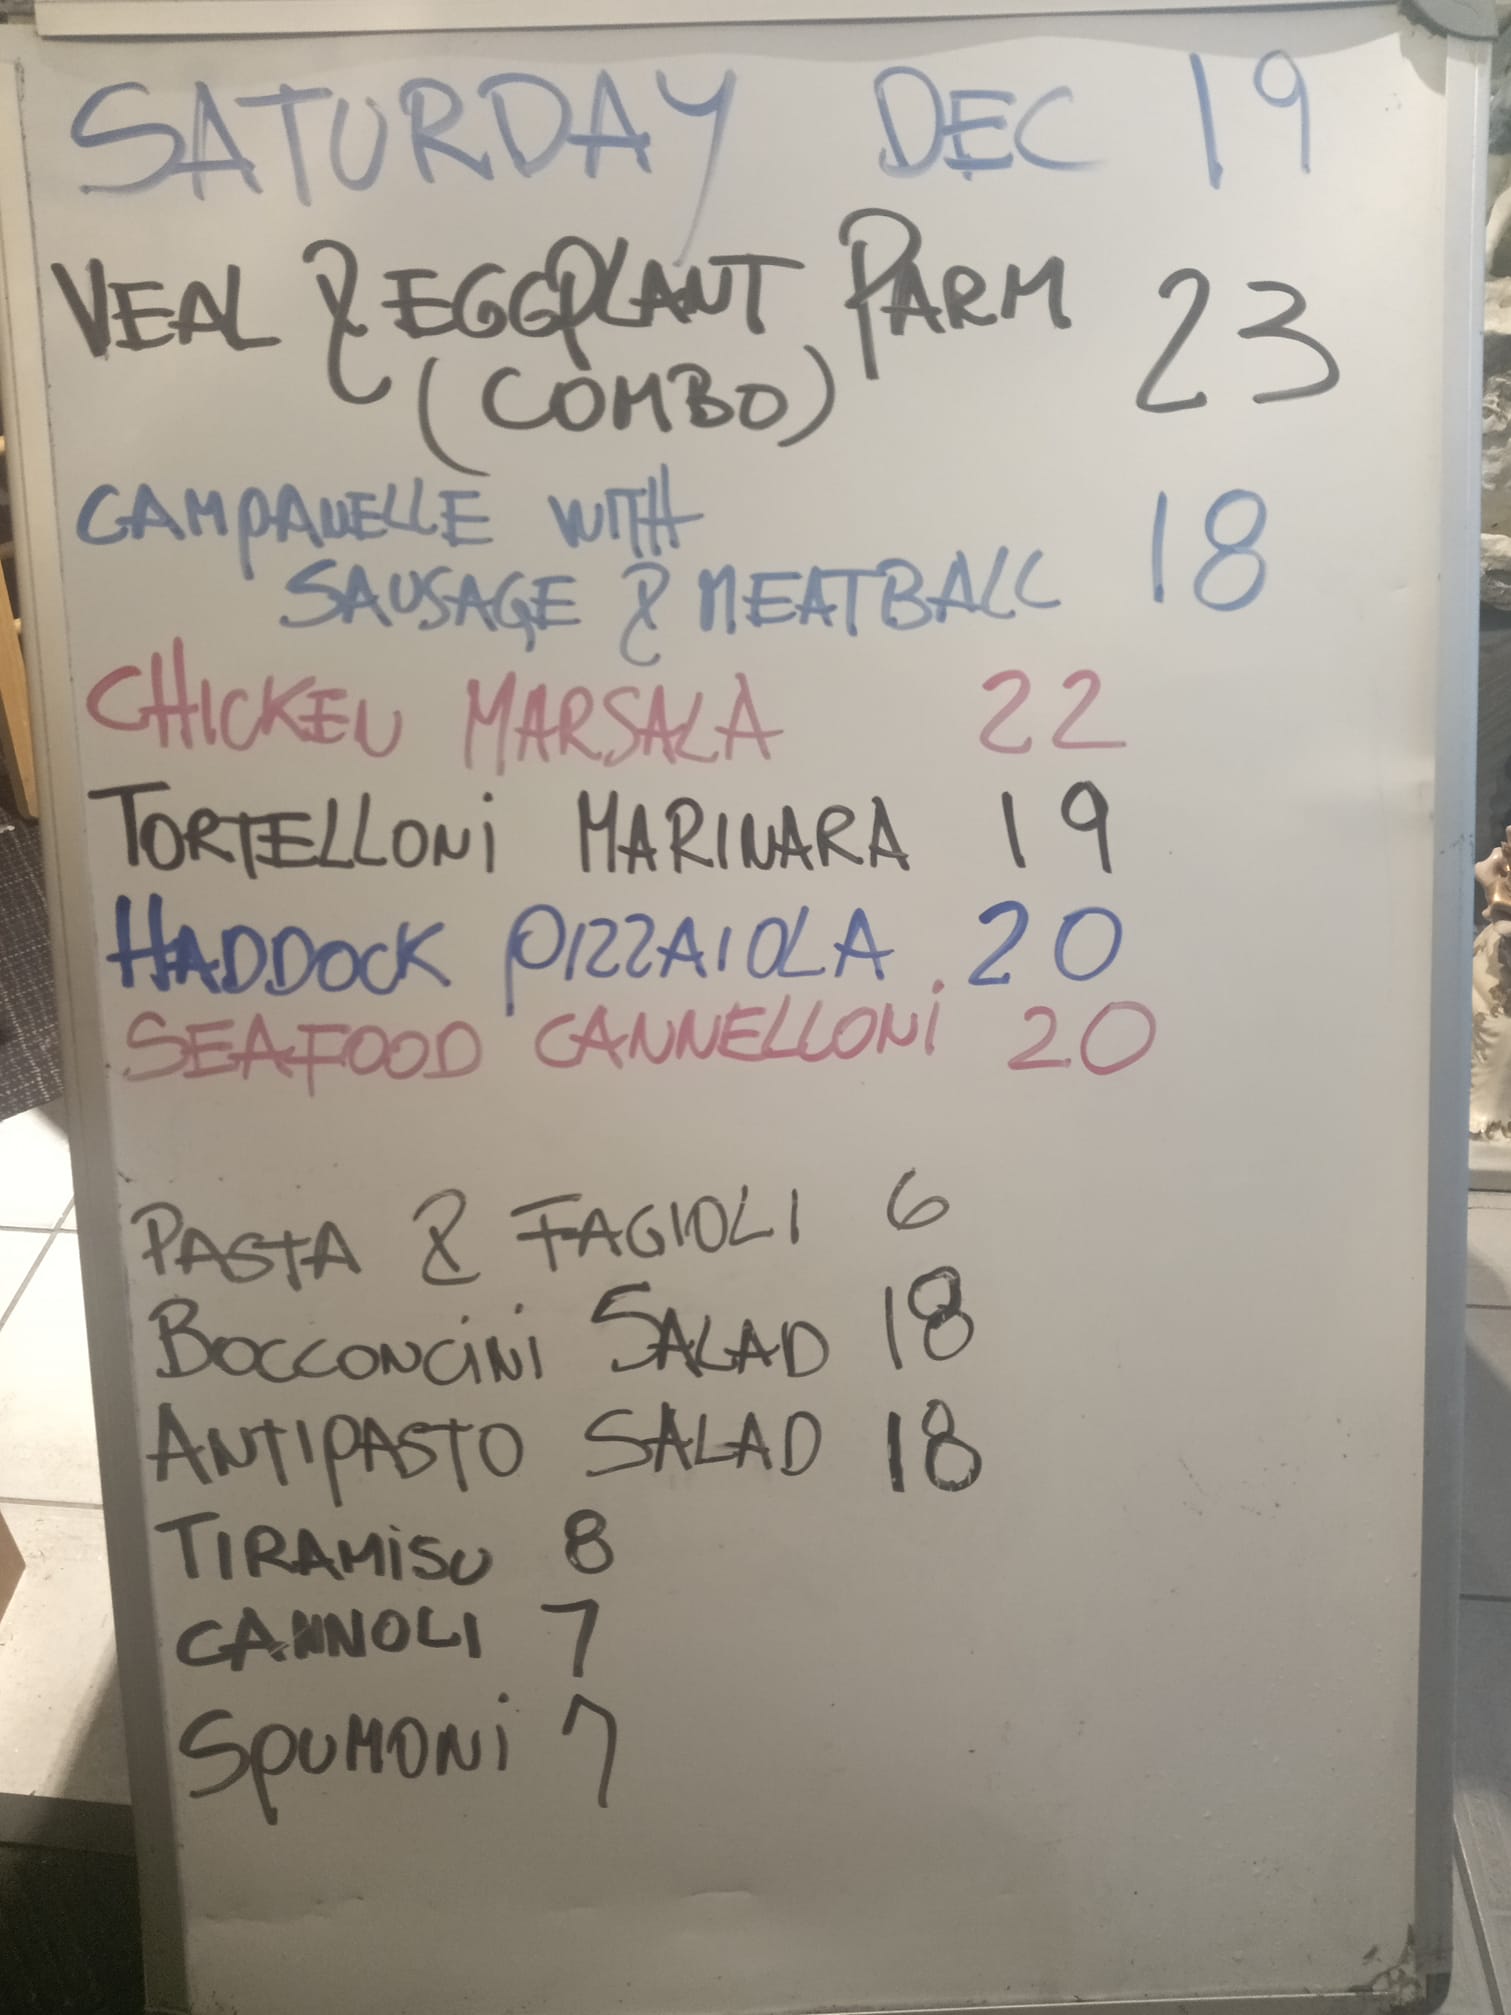 SATURDAY DEC 19
VEAL & EGGPLANT PARM 23
(COMBO)
CAMPANELLE WITH
SAUSAGE & MEATBALL 18
CHICKEN MARSALA 22
TORTELLONI MARINARA 19
HADDOCK PIZZAIOLA 20
SEAFOOD CANNELLONI 20
PASTA & FAGIOLI 6
BOCCONCINI SALAD 18
ANTIPASTO SALAD 18
TIRAMISU 8
CANNOLI 7
SPUMONI 7